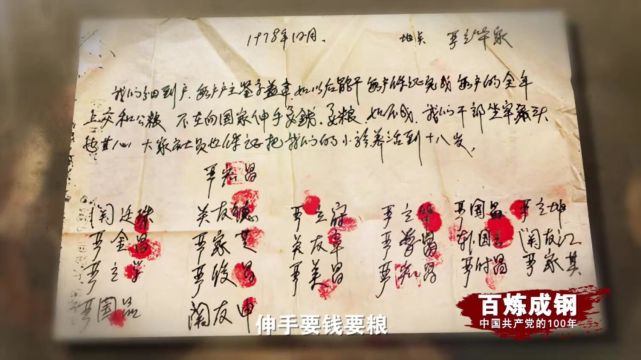 1978年12月. 地点 严立华家
我们分田到户,每户户主签字盖章,如以后能干每户保证完成每户的全年
上交和公粮 不在向国家伸手要钱,要粮 如不成,我们干部坐牢杀头
也甘心,大家社员也保证把我们的小孩养活到十八岁。
严宏昌
关廷珠 关友德 严立富 严立华 严国昌 严立坤
严金昌 严家芝 关友章 严学昌 韩国云 关友江
严立学 严俊昌 严美昌 严宏昌 严付昌 严家其
严国品 关友申
百炼成钢
中国共产党的100年
伸手要钱要粮